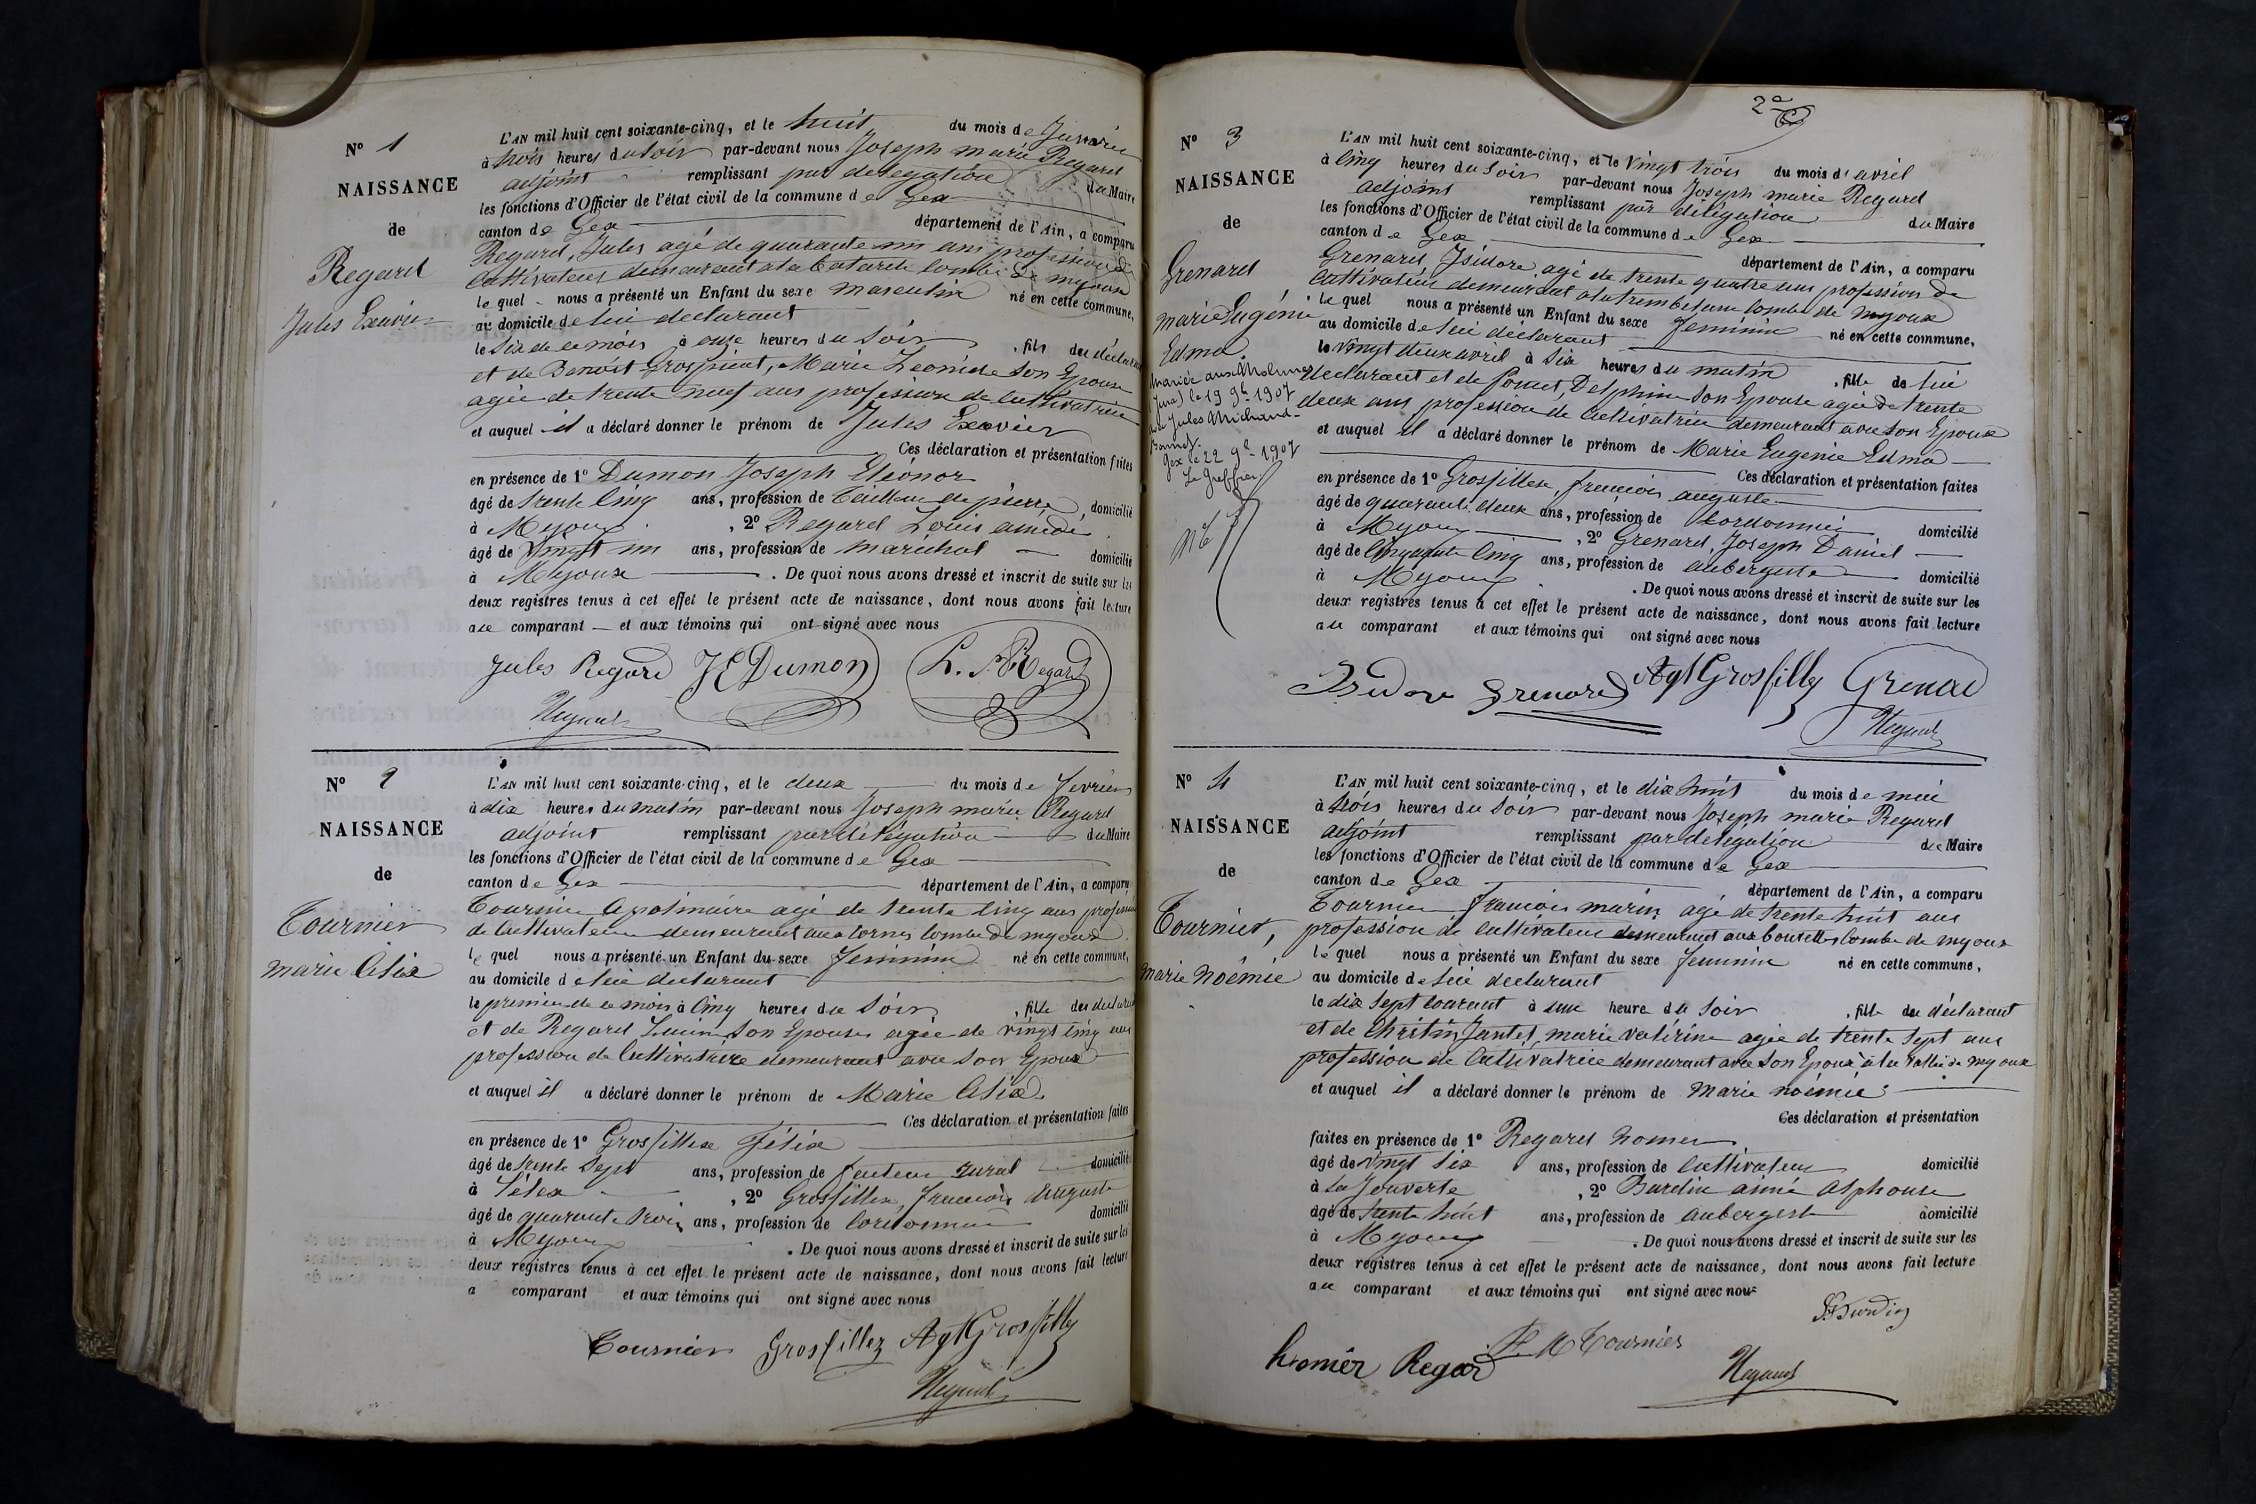 N° 1
NAISSANCE
de
Regard
Jules Exavier
L'AN mil huit cent soixante-cinq, et le huit du mois de Janvier
à trois heures du soir par-devant nous Joseph marie Regard
adjoint remplissant par délégation du Maire
les fonctions d'Officier de l'état civil de la commune de Gex
canton de Gex département de l'Ain, a comparu
Regard, Jules agé de quarante un ans profession de
Cultivateur demeurant à la Combe de myoux
le quel nous a présenté un Enfant du sexe masculin né en cette commune,
au domicile de lui déclarant
le Six de ce mois à onze heures du soir, fils du déclarant
et de Benoît Grospierre, Marie Leonide son Epouse
agée de trente neuf ans profession de Cultivatrice
et auquel il a déclaré donner le prénom de Jules Exavier
Ces déclaration et présentation faites
en présence de 1° Dumon Joseph Eléonor
âgé de trente Cinq ans, profession de tailleur de pierre, domicilié
à Myoux, 2° Regard Louis amédé
âgé de vingt un ans, profession de maréchal domicilié
à Myoux. De quoi nous avons dressé et inscrit de suite sur les
deux registres tenus à cet effet le présent acte de naissance, dont nous avons fait lecture
au comparant et aux témoins qui ont signé avec nous
Jules Regard JE Dumon L. A Regard
Regard
N° 2
NAISSANCE
de
Tournier
marie Alix
L'AN mil huit cent soixante-cinq, et le deux du mois de fevrier
à dix heures du matin par-devant nous Joseph marie Regard
adjoint remplissant par délégation du Maire
les fonctions d'Officier de l'état civil de la commune de Gex
canton de Gex département de l'Ain, a comparu
Tournier Apolinaire agé de trente Cinq ans profession
de Cultivateur demeurant aux Combe de myoux
le quel nous a présenté un Enfant du sexe feminin né en cette commune,
au domicile de lui declarant
le premier de ce mois à Cinq heures du Soir, fille du declarant
et de Regard son Epouse agée de vingt Cinq ans
profession de Cultivatrice demeurant avec son Epoux
et auquel il a déclaré donner le prénom de Marie Alix
Ces déclaration et présentation faites
en présence de 1° Grosfillex Félix
âgé de trente Sept ans, profession de facteur rural domicilié
à Lélex, 2° Grosfillex, francois Auguste
âgé de quarante trois ans, profession de Cordonnier domicilié
à Myoux. De quoi nous avons dressé et inscrit de suite sur les
deux registres tenus à cet effet le présent acte de naissance, dont nous avons fait lecture
a comparant et aux témoins qui ont signé avec nous
Tournier Grosfillez Agt Grosfilly
Regard
2e
N° 3
NAISSANCE
de
Grenard
marie Eugénie
Edma.
Mariée aux Molunes
(Jura) le 19 9b 1907
avec Jules Michaud-
Gex le 22 9b 1907
Le Greffier
L'AN mil huit cent soixante-cinq, et le vingt trois du mois d'avril
à Cinq heures du Soir par-devant nous Joseph marie Regard
adjoint remplissant par délégation du Maire
les fonctions d'Officier de l'état civil de la commune de Gex
canton de Gex département de l'Ain, a comparu
Grenard Isidore, agé de trente quatre ans profession de
Cultivateur demeurant combe de myoux
le quel nous a présenté un Enfant du sexe feminin né en cette commune,
au domicile de lui déclarant
le vingt deux avril à Six heures du matin, fille de lui
declarant et de Delphine son Epouse agée de trente
deux ans profession de Cultivatrice demeurant avec son Epoux
et auquel il a déclaré donner le prénom de Marie Eugenie Edma
Ces déclaration et présentation faites
en présence de 1° Grosfillex, francois auguste
âgé de quarante deux ans, profession de Cordonnier domicilié
à Myoux, 2° Grenard, Joseph Daniel
âgé de Cinquante Cinq ans, profession de aubergiste domicilié
à Myoux. De quoi nous avons dressé et inscrit de suite sur les
deux registres tenus à cet effet le présent acte de naissance, dont nous avons fait lecture
au comparant et aux témoins qui ont signé avec nous
Isidore Grenard Agt Grosfilly Grenard
Regard
N° 4
NAISSANCE
de
Tournier,
marie Noémie
L'AN mil huit cent soixante-cinq, et le dix huit du mois de mai
à trois heures du Soir par-devant nous Joseph marie Regard
adjoint remplissant par delégation du Maire
les fonctions d'Officier de l'état civil de la commune de Gex
canton de Gex département de l'Ain, a comparu
Tournier francois marie agé de trente huit ans
profession de Cultivateur demeurant aux Combe de myoux
le quel nous a présenté un Enfant du sexe feminin né en cette commune,
au domicile de lui declarant
le dix Sept courant à une heure du Soir, fille du déclarant
et de Christin Jantet, marie valérine agée de trente Sept ans
profession de Cultivatrice demeurant avec son Epoux à la vallée de myoux
et auquel il a déclaré donner le prénom de marie noémie
Ces déclaration et présentation
faites en présence de 1° Regard homer
âgé de vingt Six ans, profession de Cultivateur domicilié
à la Jouverte, 2° Burdin aimé Alphonse
âgé de trente huit ans, profession de aubergiste domicilié
à Myoux. De quoi nous avons dressé et inscrit de suite sur les
deux registres tenus à cet effet le présent acte de naissance, dont nous avons fait lecture
au comparant et aux témoins qui ont signé avec nous
Burdin
homèr Regard F. M Tournier
Regard